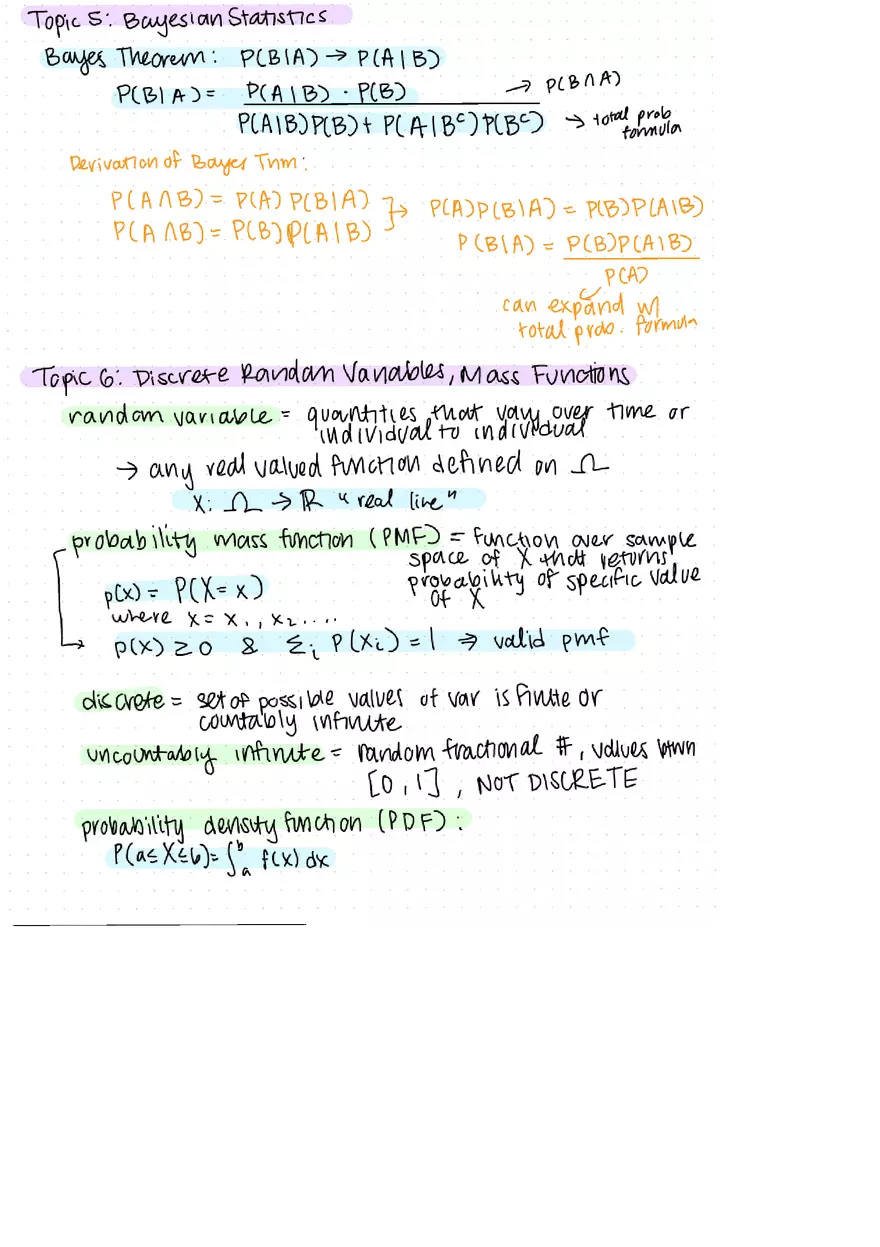 Topic 5: Bayesian Statistics
Bayes Theorem: P(B|A) → P(A|B)
P(B|A) = P(A|B) · P(B) → P(B∩A)
P(A|B)P(B) + P(A|Bᶜ)P(Bᶜ) → total prob formula
Derivation of Bayes Thm:
P(A∩B) = P(A) P(B|A)
P(A∩B) = P(B)P(A|B)
→ P(A)P(B|A) = P(B)P(A|B)
P(B|A) = P(B)P(A|B)
P(A)
can expand w/
total prob. formula
Topic 6: Discrete Random Variables, Mass Functions
random variable = quantities that vary over time or
individual to individual
→ any real valued function defined on Ω
X: Ω → ℝ "real line"
probability mass function (PMF) = function over sample
space of X that returns
probability of specific value
of X
p(x) = P(X = x)
where x = x₁, x₂ ....
p(x) ≥ 0 & Σᵢ P(Xᵢ) = 1 ⇒ valid pmf
discrete = set of possible values of var is finite or
countably infinite
uncountably infinite = random fractional #, values btwn
[0,1], NOT DISCRETE
probability density function (PDF):
P(a≤X≤b) = ∫ₐᵇ f(x) dx